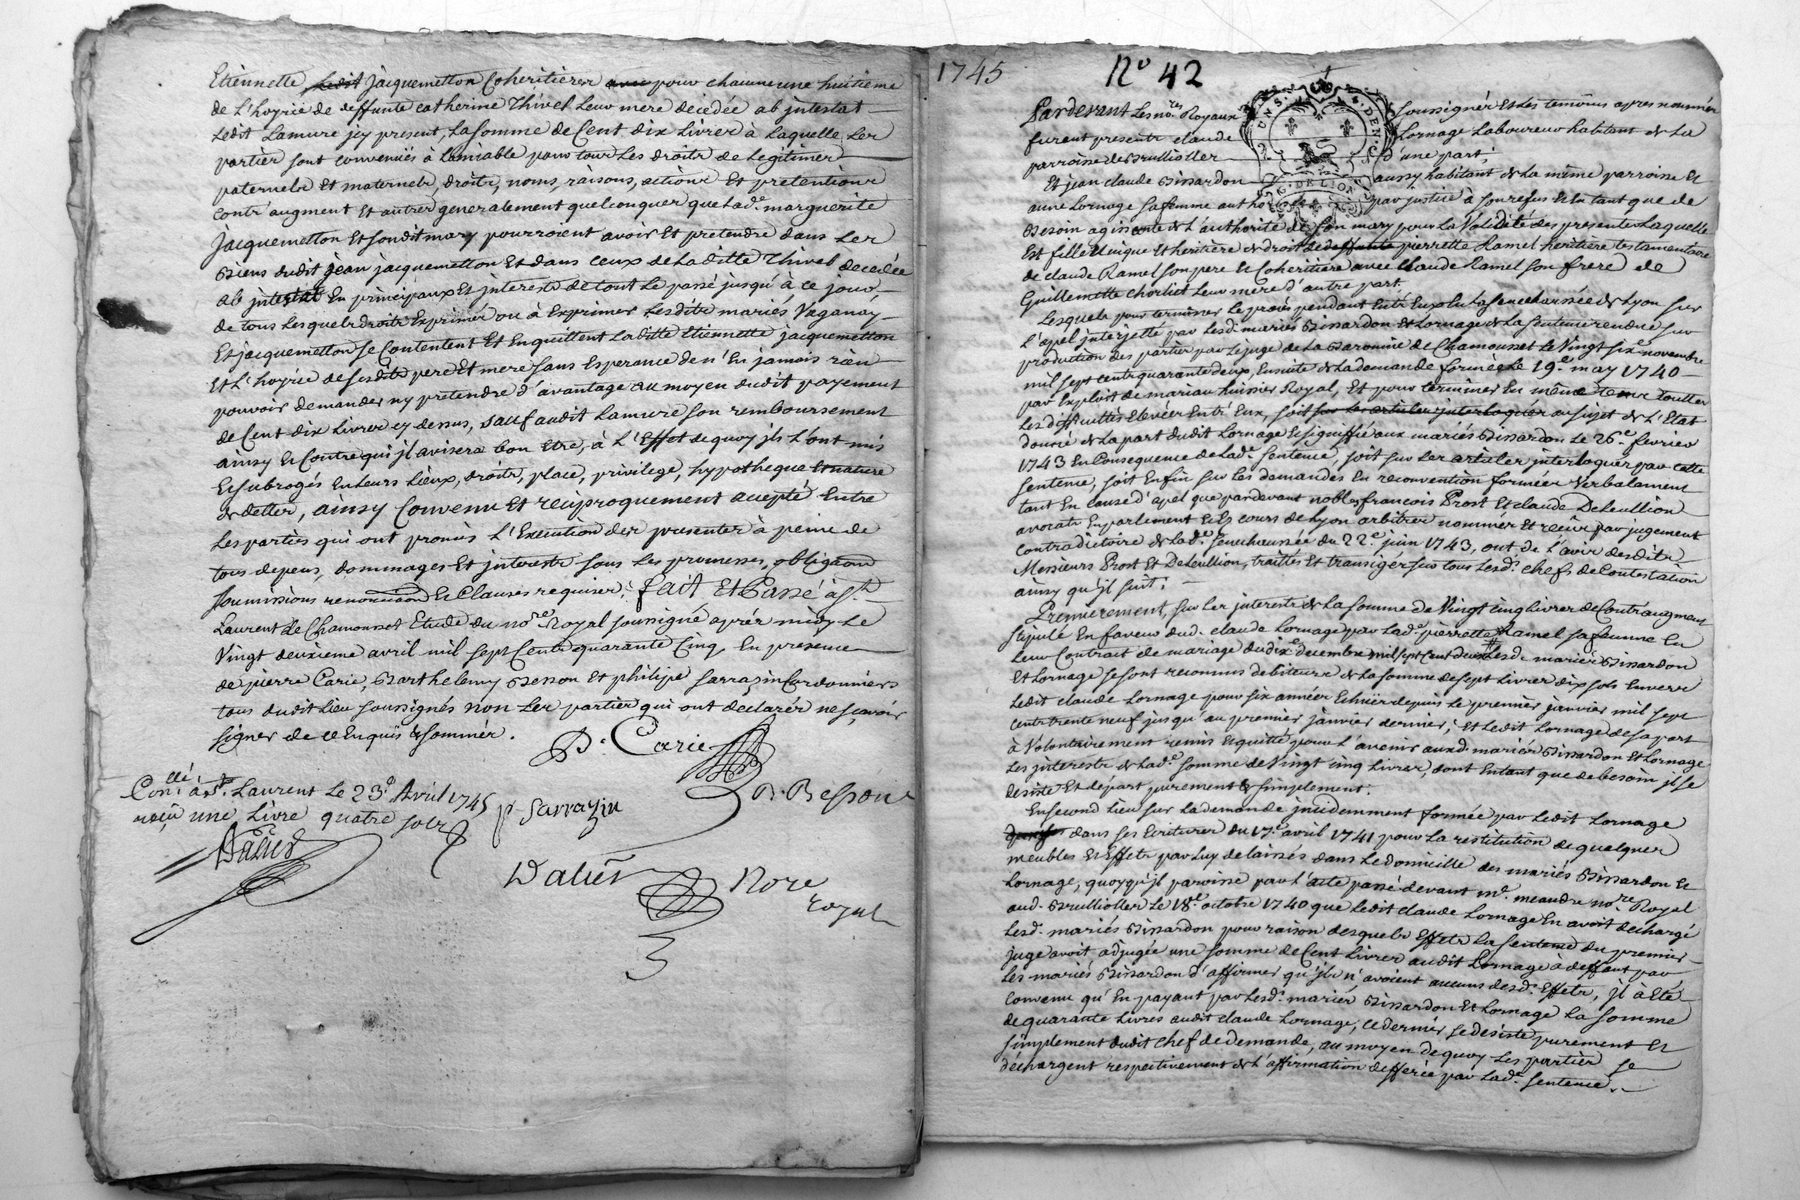 Etiennette Jacquemetton Coheritieres pour chacune une huitieme
de L'hoyrie de deffunte catherine Thivel Leur mere decedée ab jntestat
Ledit Lamure jcy present, La somme de Cent dix Livres à Laquelle Les
parties sont convenuës à Lamiable pour tous Les droits de Legitimes
paternels Et maternels, droits, noms, raisons, actions Et pretentions
contr'augment Et autres generalement quelconques que Lad.e marguerite
jacquemetton Et soudit mary pourroient avoir Et pretendre dans Les
Biens dudit jean jacquemetton Et dans ceux de La ditte Thivel decedée
ab jntestat En principaux Et jnterests de tout Le passé jusqu'à ce jour,
de tous Lesquels droits Exprimés ou à Exprimer Lesdits mariés Vaganay
Et jacquemetton se Contentent Et En quittent La ditte Etiennette jacquemetton
Et L'hoyrie de sesdits pere Et mere sans Esperance de n'En jamais rien
pouvoir demander ny pretendre d'avantage au moyen dudit payement
de Cent dix Livres cy dessus, sauf audit Lamure son remboursement
ainsy Et Contre qui jl avisera bon Etre, à L'Effet de quoy jls L'ont mis
Et subrogés En Leurs Lieux, droits, place, privilege, hypotheque Et nature
de dettes, ainsy Convenu Et reciproquement accepté Entre
Les parties qui ont promis L'Execution des presentes à peine de
tous depens, dommages Et jnterests sous Les promesses, obligaon
soumissions renonciaons Et Clauses requises; fait Et Passé à St
Laurent de Chamousset Etude du no.re Royal soussigné après midy Le
Vingt deuxieme avril mil sept Cents quarante Cinq, En presence
de pierre Carie, Barthelemy Besson Et philipe Sarrazin Cordonniers
tous dudit Lieu soussignés non Les parties qui ont declarér ne sçavoir
signer de ce Enquis Et sommés.
P. Carie
B. Besson
Conllé à St. Laurent Le 23.e Avril 1745
reçu une Livre quatre sols
p Sarrazin
Dalier
Nore
royal
1745
No 42
Pardevant Les no.res Royaux soussigné Et Les temoins apres nommés
furent presents claude Lornage Laboureur habitant de La
parroisse de Brulliolles d'une part;
Et jean claude Bissardon aussy habitant de La même parroisse Et
anne Lornage sa femme authorisée par justice à son refus Et En tant que de
Besoin agissante de L'authorité de son mary pour La Validité des presentes Laquelle
Est fille Unique Et heritiere de droit de deffunte pierrette Ramel heritiere testamentaire
de claude Ramel son pere Et Coheritiere avec Claude Ramel son frere de
Guillemette Chorliet Leur mere d'autre part.
Lesquels pour terminer Le procès pendant Entr'Eux En La senechaussée de Lyon sur
L'apel jnterjetté par Lesd. mariés Bissardon Et Lornage de La sentence rendue sur
production des parties par Le juge de La Baronnie de Chamousset Le Vingt six.e novembre
mil sept cent quarante deux, Ensuite de La demande formée Le 19.e may 1740
par Exploit de mariau huissier Royal, Et pour terminer En même tems toutes
Les difficultés Elevées Entr'Eux, soit sur Les articles jnterloqués au sujet de L'Etat
donné de La part dudit Lornage Et signiffié aux mariés Bissardon Le 26.e fevrier
1743 En Consequence de Lad.e sentence, soit sur Les articles jnterloqués par cette
sentence, soit Enfin sur Les demandes En reconvention formées Verbalement
tant En Cause d'apel que pardevant nobles françois Prost Et claude Deleullion
avocats En parlement Et Es cours de Lyon arbitres nommés Et reçûs par jugement
contradictoire de Lad.e senechaussée du 22.e juin 1743, ont de L'avis desdits
Messieurs Prost Et Deleullion, traittés Et transigés sur tous Lesd. chefs de Contestation
ainsy qu'jl suit;
Premierement, sur Les jnterests de La somme de Vingt cinq Livres de Contraugment
stipulé En faveur dud. claude Lornage par Lad.e pierrette Ramel sa femme En
Leur Contrait de mariage du dix decembre mil sept Cent Lesd. mariés Bissardon
Et Lornage se sont reconnus debiteurs de La somme de sept Livres dix sols Envers
Ledit claude Lornage pour six années Echües depuis Le premier janvier mil sept
Cents trente neuf jusqu'au premier janvier dernier; Et Ledit Lornage de sa part
à Volontairement remis Et quitté pour L'avenir auxd. mariés Bissardon Et Lornage
Les jnterests de Lad.e somme de Vingt cinq Livres, dont Entant que de besoin jl se
desiste Et départ purement & simplement;
En second Lieu sur La demande jncidemment formée par Ledit Lornage
dans ses Ecritures du 17.e avril 1741 pour La restitution de quelques
meubles Et Effets par Luy delaissés dans Le domicille des mariés Bissardon Et
Lornage, quoyqu'jl paroisse par L'acte passé devant m.e meandre no.re Royal
aud. Brulliolles Le 18.e octobre 1740 que Ledit claude Lornage En avoit dechargé
Lesd. mariés Bissardon pour raison desquels Effets La sentence du premier
juge avoit adjugée une somme de Cent Livres audit Lornage à deffaut par
Les mariés Bissardon d'affirmer qu'jls n'avoient aucuns desd. Effets, jl à Eté
Convenu qu'En payant par Lesd. mariés Bissardon Et Lornage La somme
de quarante Livres audit claude Lornage, ce dernier se desiste purement Et
simplement dudit chef de demande, au moyen de quoy Les parties se
déchargent respectivement de L'affirmation defferée par Lad.e sentence.